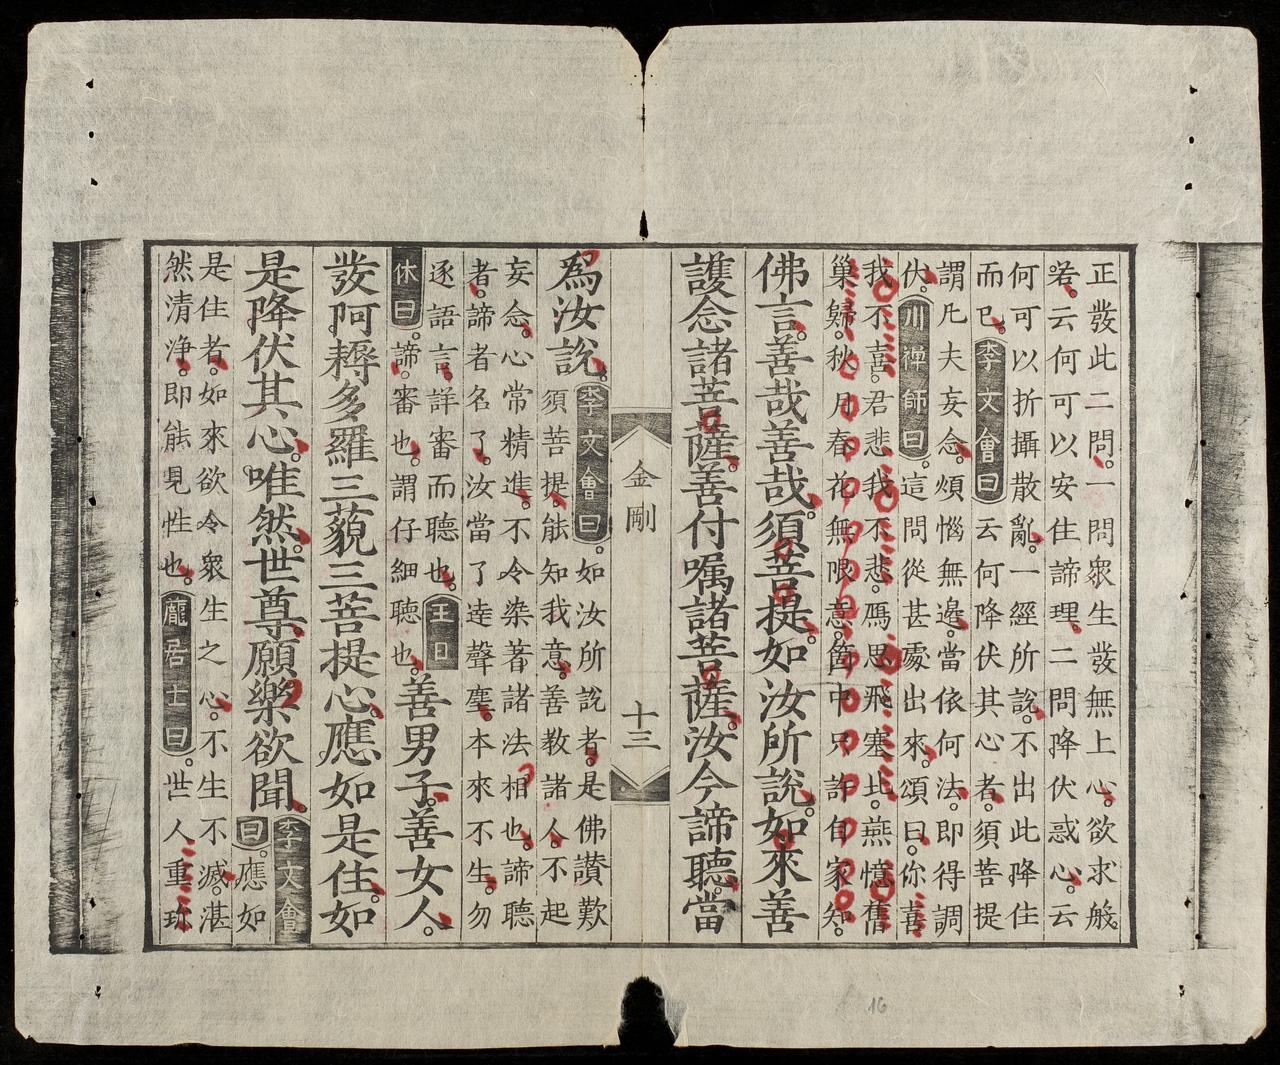 正發此二問。一問衆生發無上心。欲求般
若。云何可以安住諦理。二問降伏惑心。云
何可以折攝散亂。一經所說。不出此降住
而已。李文會曰云何降伏其心者。須菩提
謂凡夫妄念。煩惱無邊。當依何法。即得調
伏。川禪師曰。這問從甚處出來。頌曰。你喜
我不喜。君悲我不悲。鴈思飛塞北。燕憶舊
巢歸。秋月春花無限意。箇中只許自家知。
佛言。善哉善哉。須菩提。如汝所說。如來善
護念諸菩薩。善付囑諸菩薩。汝今諦聽。當
金剛
十三
為汝說。
李文會曰。如汝所說者。是佛讚歎
須菩提。能知我意。善教諸人。不起
妄念。心常精進。不令染著諸法相也。諦聽
者。諦者名了。汝當了達聲塵。本來不生。勿
逐語言。詳審而聽也。王日
休曰。諦。審也。謂仔細聽也。
善男子。善女人。
發阿耨多羅三藐三菩提心。應如是住。如
是降伏其心。唯然。世尊。願樂欲聞。
李文會
曰。應如
是住者。如來欲令衆生之心。不生不滅。湛
然清浄。即能見性也。龐居士曰。世人重珍
16